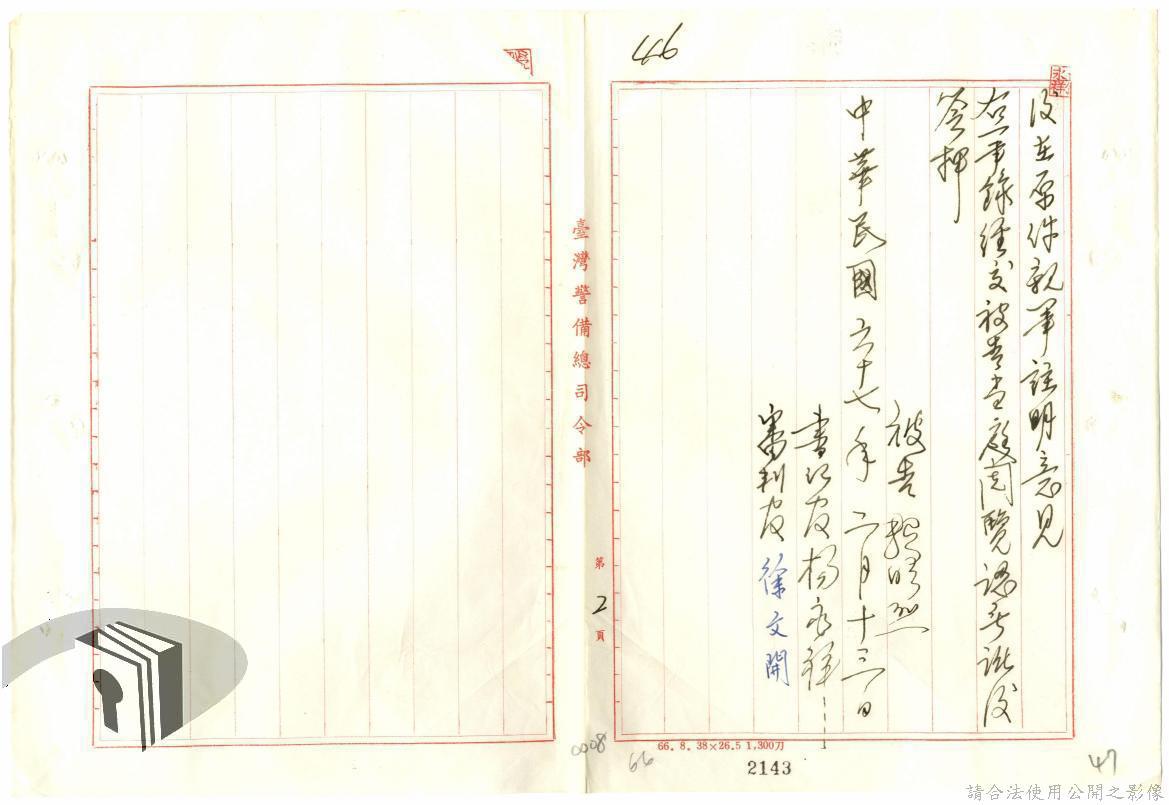 46
永祥
後在原件親筆註明意見
右筆錄經交被告當庭閱覽認無訛後
簽押
中華民國六十七年二月十三日
被告
書記官楊永祥
審判官徐文開
臺灣警備總司令部
第2頁
66. 8. 38×26.5 1,300刀
2143
0008
66
47
請合法使用公開之影像